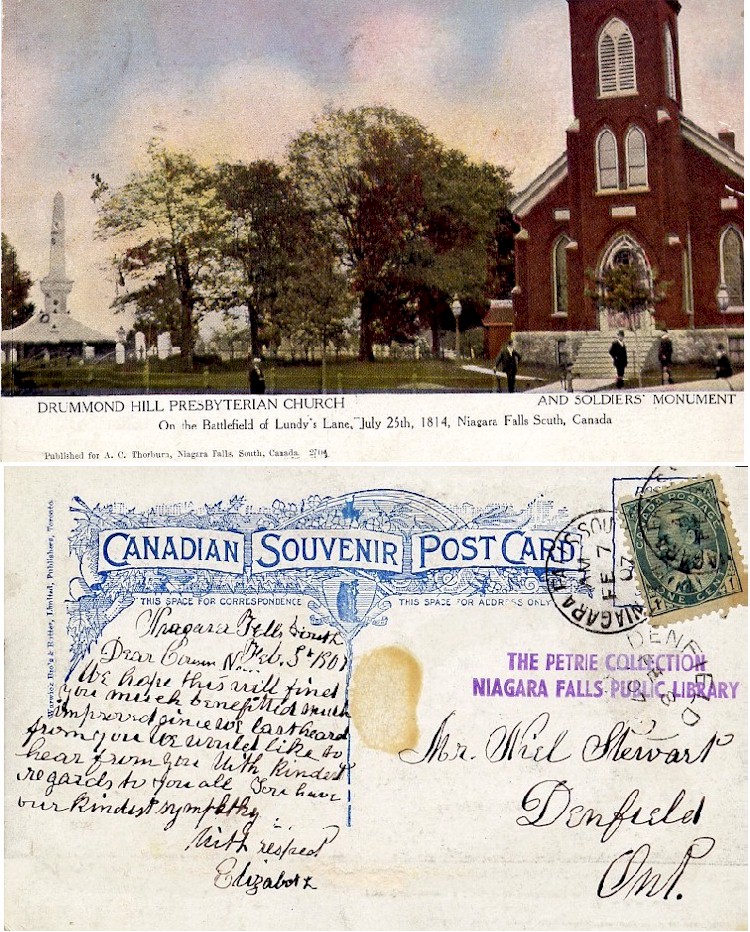 DRUMMOND HILL PRESBYTERIAN CHURCH AND SOLDIERS' MONUMENT
On the Battlefield of Lundy's Lane, July 25th, 1814, Niagara Falls South, Canada
Published for A. C. Thorburn, Niagara Falls, South, Canada 2704
CANADIAN SOUVENIR POST CARD
THIS SPACE FOR CORRESPONDENCE
THIS SPACE FOR ADDRESS ONLY
Warwick Bro's & Rutter, Limited, Publishers, Toronto.
NIAGARA FALLS SOUTH
AM
FE 7
07
CANADA POSTAGE
ONE CENT
DENFIELD
THE PETRIE COLLECTION
NIAGARA FALLS PUBLIC LIBRARY
Niagara Falls South
Feb. 5th 1907
Dear Cousin
We hope this will find
you much benefited much
improved since we last heard
from you We would like to
hear from you With kindest
regards to you all You have
our kindest sympathy
With respect
Elizabeth
Mr. Stewart
Denfield
Ont.